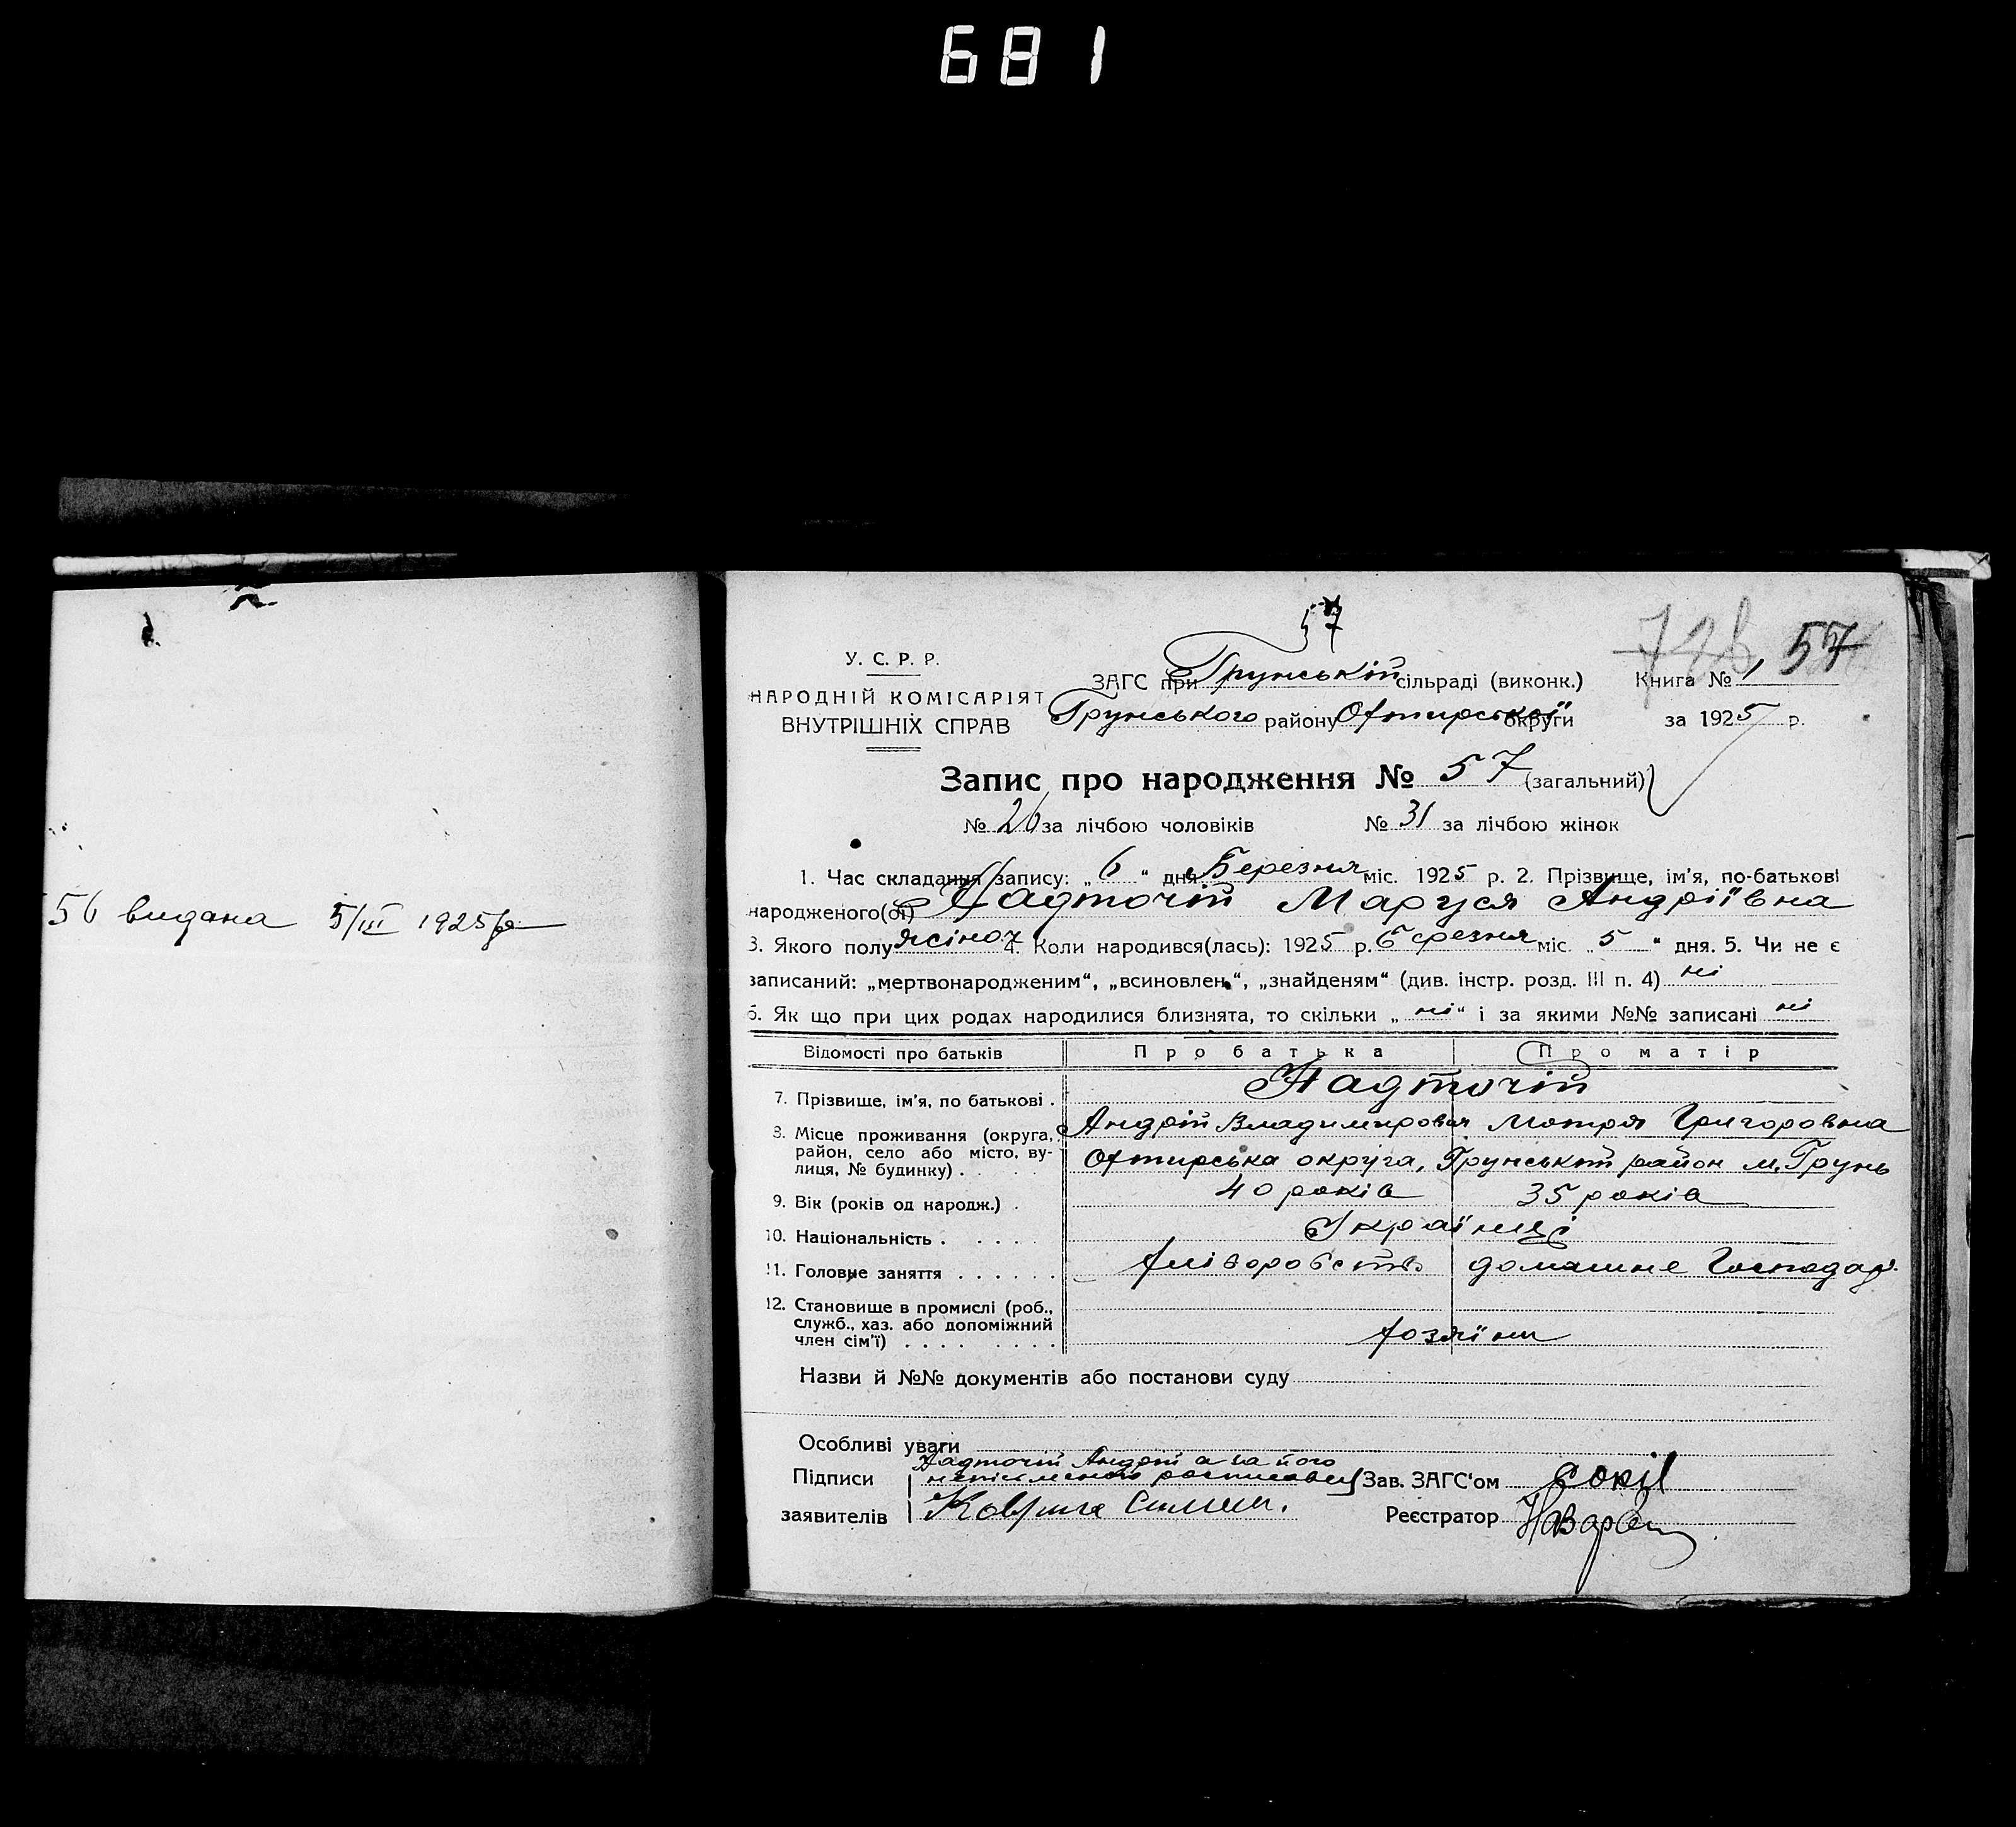 681
56 видана 5/III 1925 р
57
57
У. С. Р. Р.
НАРОДНІЙ КОМІСАРІЯТ
ВНУТРІШНІХ СПРАВ
ЗАГС при Грунській сільраді (виконк.) Книга № 1
Грунського району Охтирської округи за 1925 р.
Запис про народження № 57 (загальний)
№ 26 за лічбою чоловіків № 31 за лічбою жінок
1. Час складання запису: „ 6 “ дня Березня міс. 1925 р. 2. Прізвище, ім'я, по-батькові
народженого(ої) Надточій Маруся Андріївна
3. Якого полу жіноч 4. Коли народився(лась): 1925 р. березня міс. „ 5 “ дня. 5. Чи не є
записаний: „мертвонародженим“, „всиновлен“, „знайденям“ (див. інстр. розд. III п. 4) ні
6. Як що при цих родах народилися близнята, то скільки „ ні “ і за якими №№ записані ні
Відомості про батьків Про батька Про матір
7. Прізвище, ім'я, по батькові . Надточій
Андрій Владимирович Мотря Григоровна
8. Місце проживання (округа,
район, село або місто, ву-
лиця, № будинку) . Охтирська округа, Грунській район м. Грунь
9. Вік (років од народж.) . 40 років 35 років
10. Національність . . . . . Українці
11. Головне заняття . . . . . . хліборобство домашнє Господар.
12. Становище в промислі (роб.,
служб., хаз. або допоміжний
член сім'ї) . . . . . . . . хозяїни
Назви й №№ документів або постанови суду
Особливі уваги
Підписи Надточій Андрій а за його
неписьменого росписався Зав. ЗАГС'ом Сокіл
заявителів Реєстратор